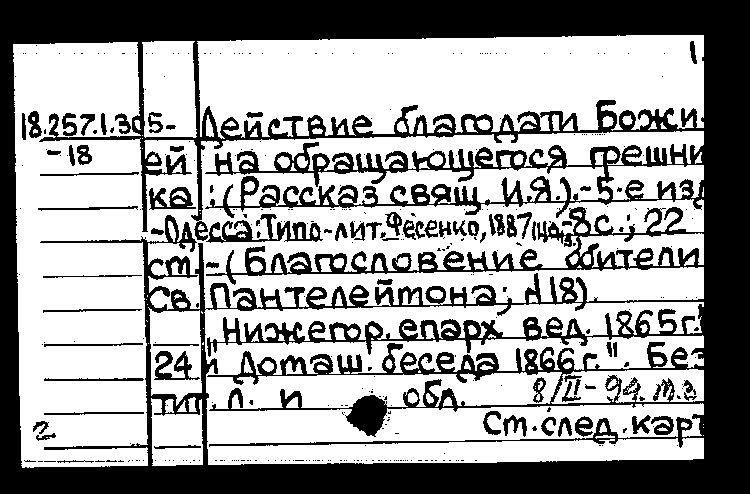 1.
18.257.1.305- Действие благодати Божи-
-18 ей на обращающегося грешни
ка : (Рассказ свящ. И.Я.).-5-е изд
-Одесса: Типо-лит. Фесенко, 1887 -8с.; 22
см.-(Благословение обители
Св. Пантелеймона; №18).
"Нижегор. епарх вед. 1865г."
24 и "Домаш. беседа 1866г.". Без
тит. л. и обл. 8/II-94. т.з
2 См. след. карт